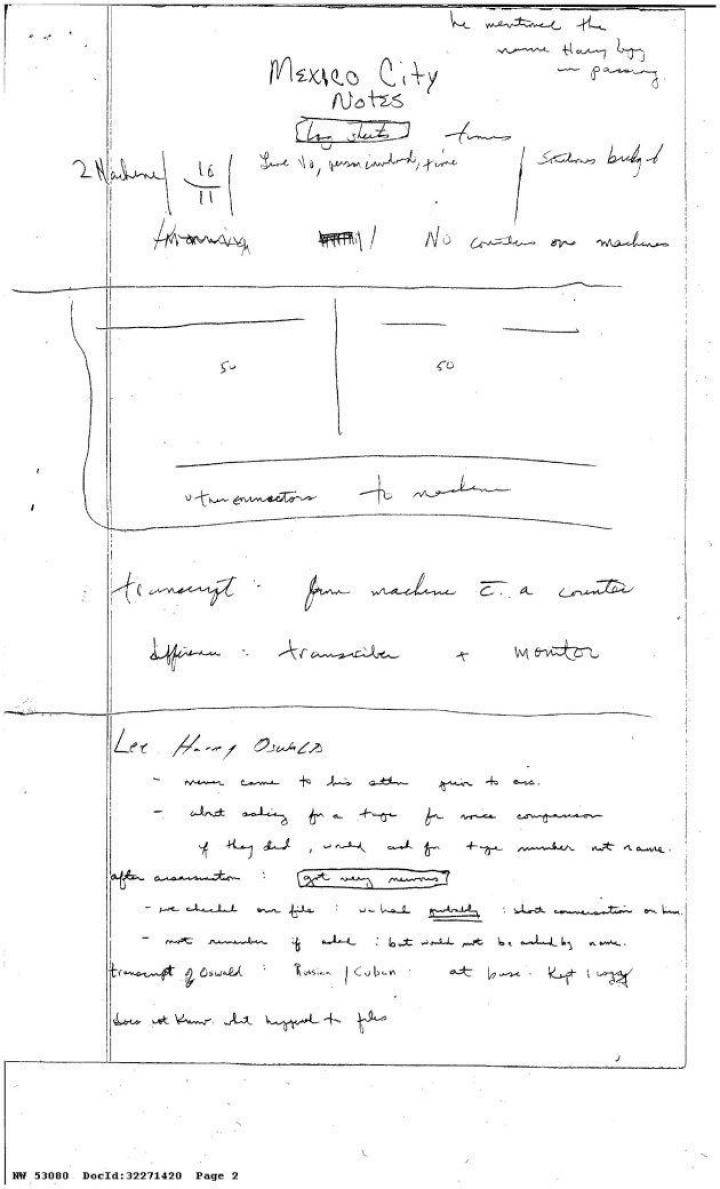 he mentioned the
name Harry
in passing.
Mexico City
Notes
log sheets times
2 Machine 16 Line No, person involved, time
11
No counters on machines
50 50
to machine
transcript : from machine c̄. a counter
difference : transcriber + monitor
Lee Harvey Oswald
- never came to his attn prior to ass.
- about asking for a tape for voice comparison
if they did, would ask for tape number not name.
after assassination : got very nervous
- we checked our file : we had probably : short conversation on him.
- not remember if asked : but would not be asked by name.
transcript of Oswald : Russian / Cuban at base. Kept 1 copy
does not know what happened to files
NW 53080 DocId:32271420 Page 2